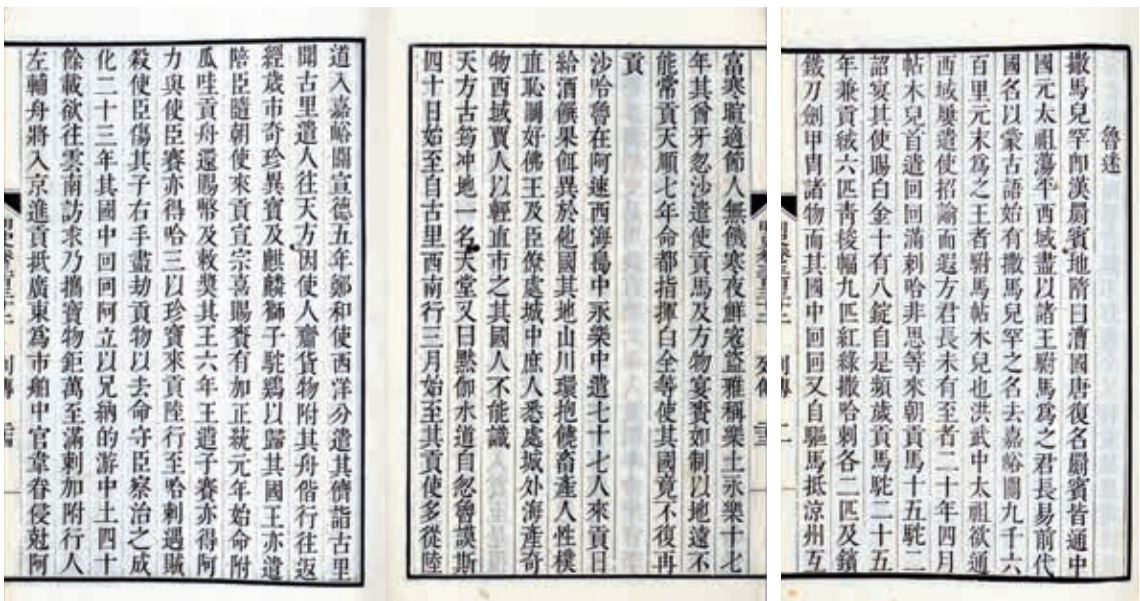 魯迷
撒馬兒罕卽漢罽賓地隋曰漕國唐復名罽賓皆通中
國元太祖蕩平西域盡以諸王駙馬爲之君長易前代
國名以蒙古語始有撒馬兒罕之名去嘉峪關九千六
百里元末爲之王者駙馬帖木兒也洪武中太祖欲通
西域屢遣使招諭而遐方君長未有至者二十年四月
帖木兒首遣回回滿剌哈非思等來朝貢馬十五駝二
詔宴其使賜白金十有八錠自是頻歲貢馬駝二十五
年兼貢絨六匹靑梭幅九匹紅綠撒哈剌各二匹及鑌
鐵刀劍甲冑諸物而其國中回回又自驅馬抵涼州互
列傳 二
列傳
富寒暄適節人無饑寒夜鮮寇盜雅稱樂土永樂十七
年其酋牙忽沙遣使貢馬及方物宴賚如制以地遠不
能常貢天順七年命都指揮白全等使其國竟不復再
貢
沙哈魯在阿速西海島中永樂中遣七十七人來貢日
給酒饌果餌異於他國其地山川環抱饒畜產人性樸
直恥鬭好佛王及臣僚處城中庶人悉處城外海產奇
物西域賈人以輕直市之其國人不能識
天方古筠冲地一名天堂又曰默伽水道自忽魯謨斯
四十日始至自古里西南行三月始至其貢使多從陸
道入嘉峪關宣德五年鄭和使西洋分遣其儕詣古里
聞古里遣人往天方因使人齎貨物附其舟偕行往返
經歲市奇珍異寶及麒麟獅子駝鷄以歸其國王亦遣
陪臣隨朝使來貢宣宗喜賜賚有加正統元年始命附
瓜哇貢舟還賜幣及敕獎其王六年王遣子賽亦得阿
力與使臣賽亦得哈三以珍寶來貢陸行至哈剌遇賊
殺使臣傷其子右手盡劫貢物以去命守臣察治之成
化二十三年其國中回回阿立以兄納的游中土四十
餘載欲往雲南訪求乃攜寶物鉅萬至滿剌加附行人
左輔舟將入京進貢抵廣東爲市舶中官韋眷侵尅阿